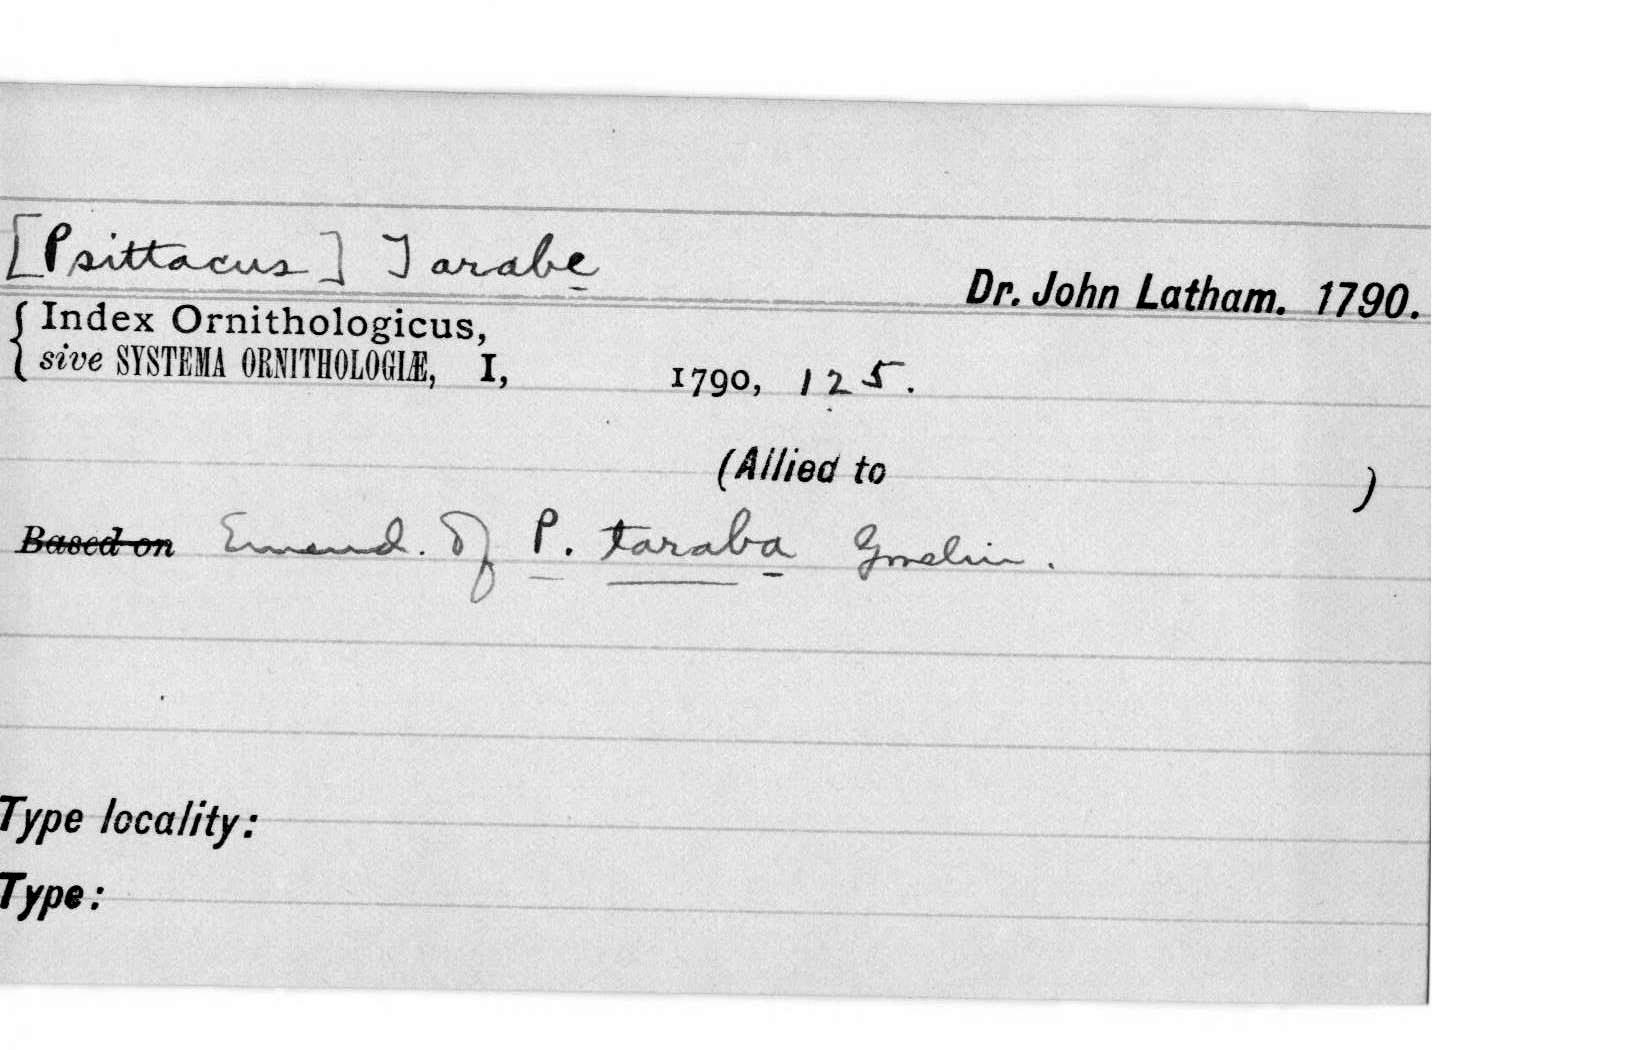 [Psittacus] Tarabe
Dr. John Latham. 1790.
Index Ornithologicus,
sive SYSTEMA ORNITHOLOGIÆ, I, 1790, 125.
(Allied to )
Based on Emend. of P. taraba Gmelin.
Type locality:
Type: